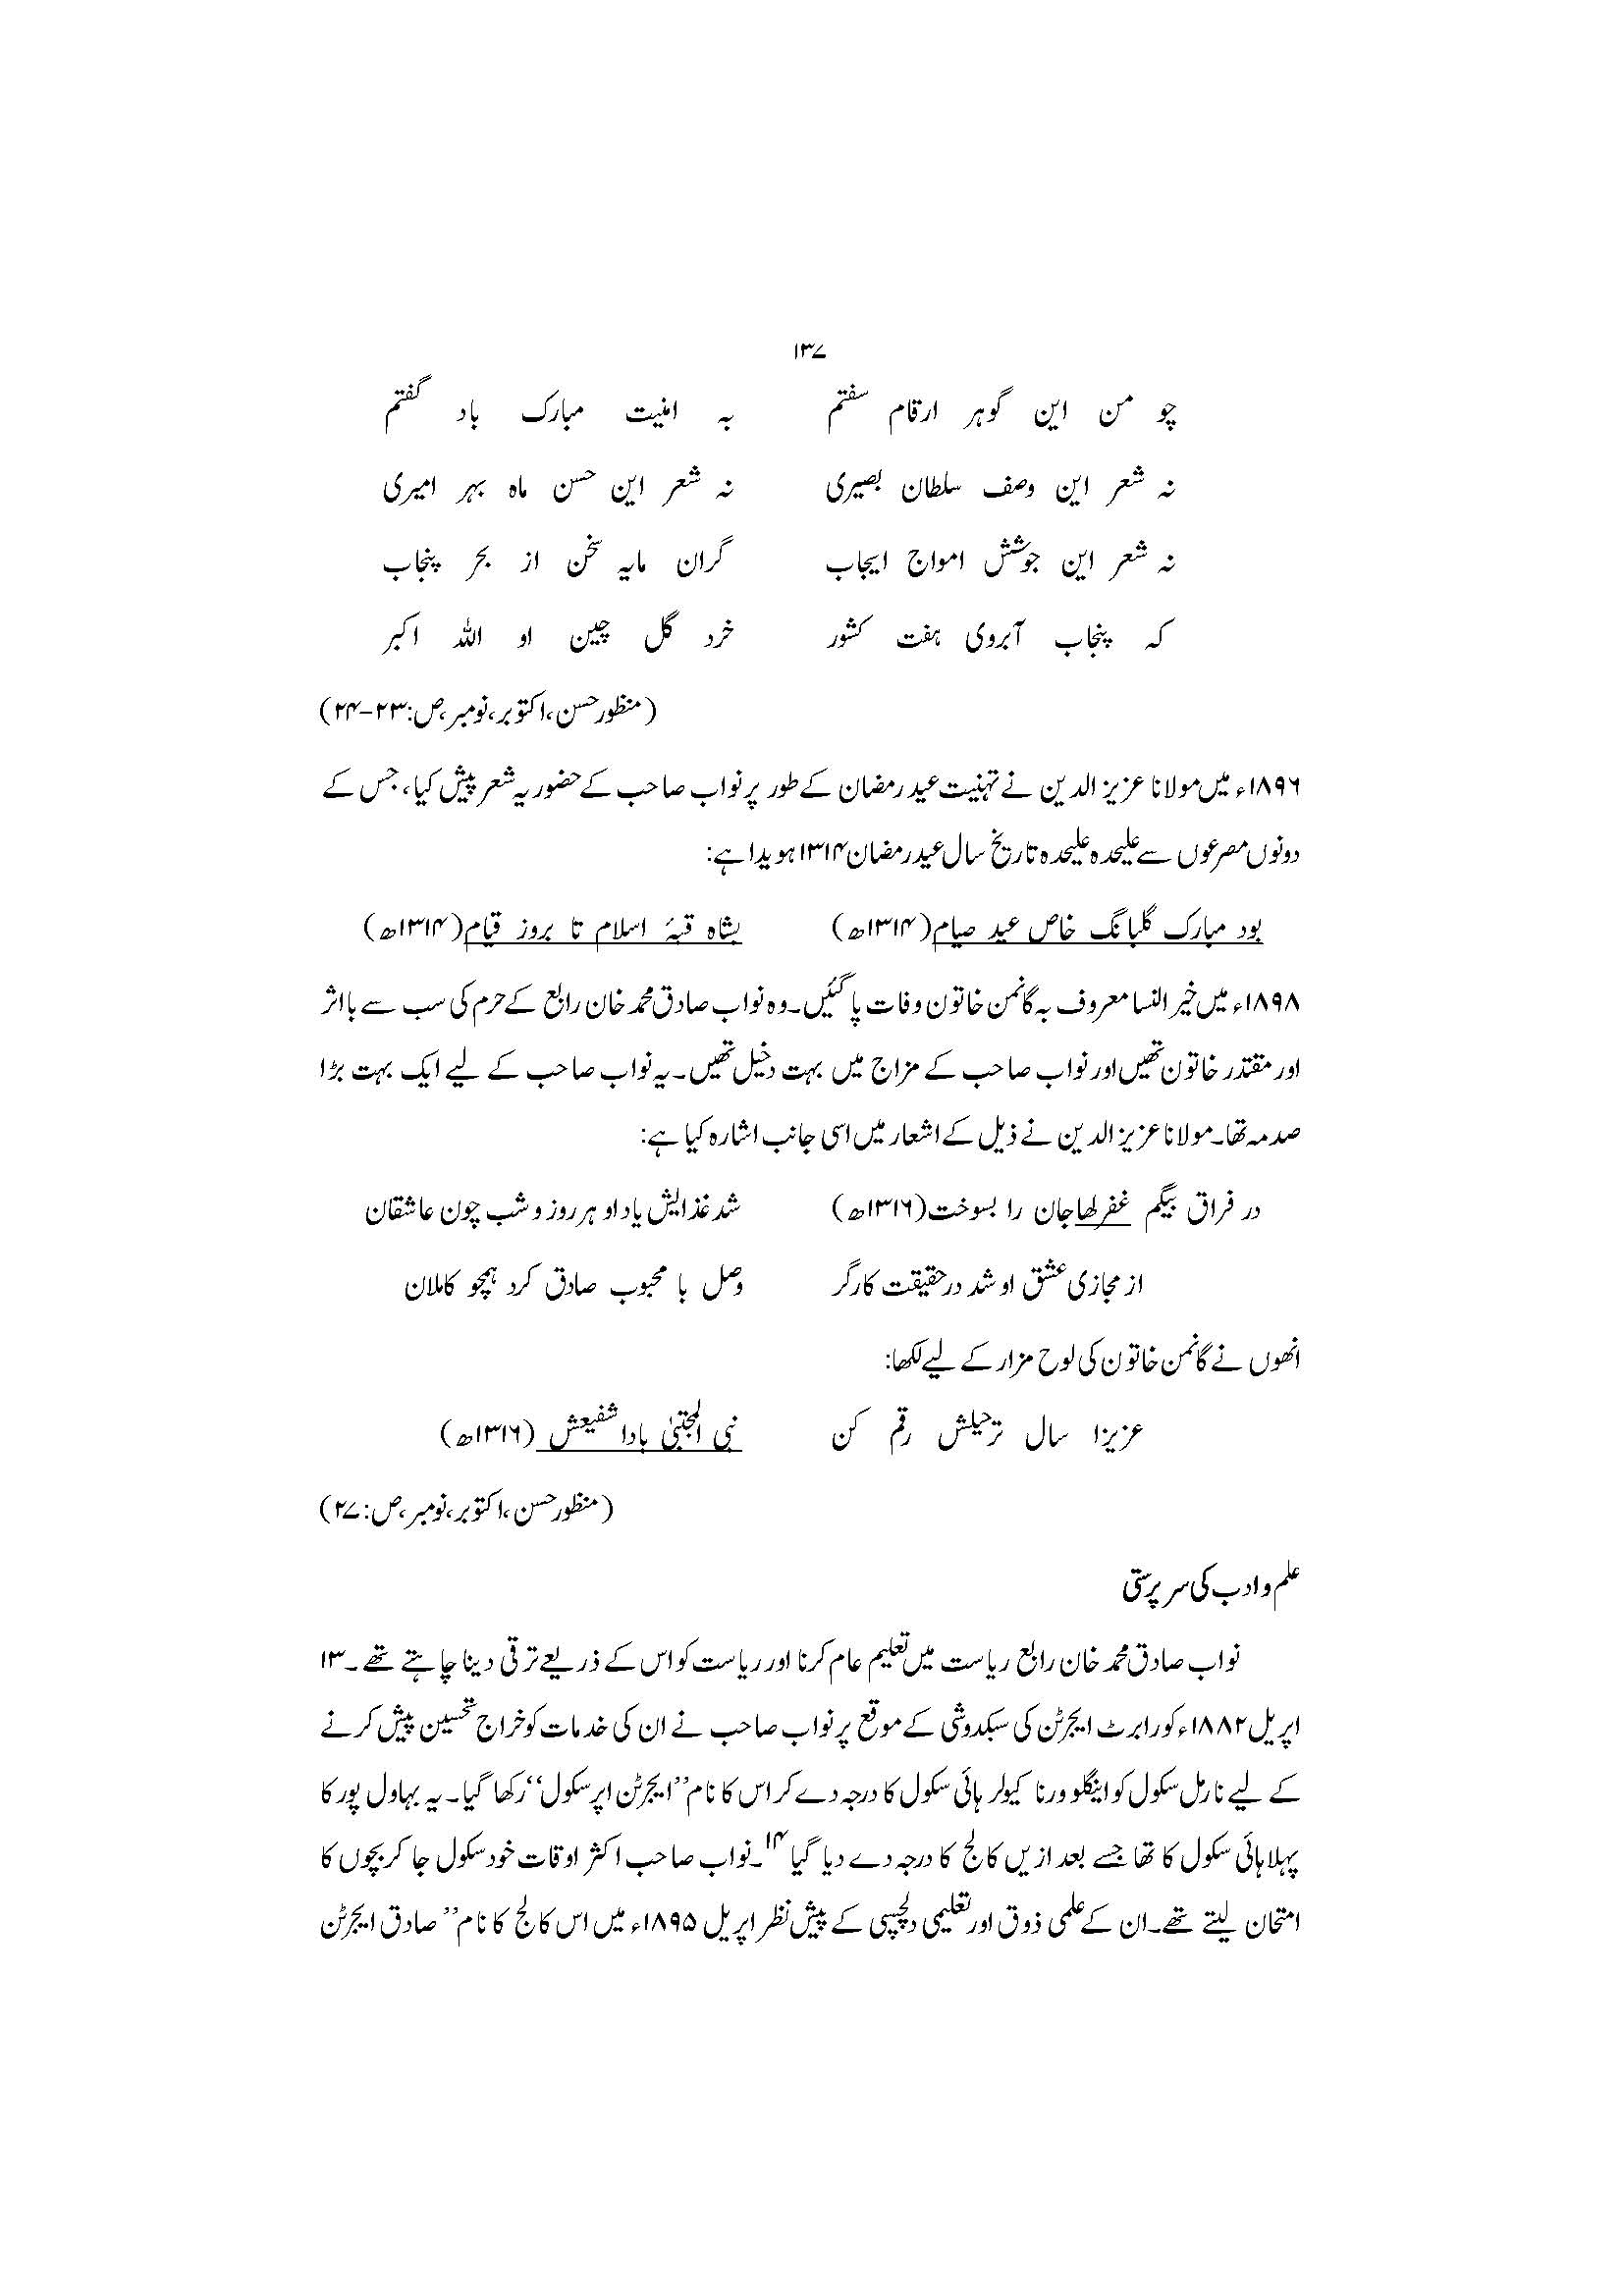 ۱۳۷
چو من این گوہر ارقام سفتم بہ امنیت مبارک باد گفتم
نہ شعر این وصف سلطان بصیری نہ شعر این حسن ماہ بہر امیری
نہ شعر این جوشش امواج ایجاب گران مایہ سخن از بحر پنجاب
کہ پنجاب آبروی ہفت کشور خرد گل چین او اللہ اکبر
(منظور حسن، اکتوبر، نومبر، ص: ۲۳-۲۴)
۱۸۹۶ء میں مولانا عزیز الدین نے تہنیت عید رمضان کے طور پر نواب صاحب کے حضور یہ شعر پیش کیا، جس کے
دونوں مصرعوں سے علیحدہ علیحدہ تاریخ سال عید رمضان ۱۳۱۴ ہویدا ہے:
بود مبارک گلبانگ خاص عید صیام (۱۳۱۴ھ) بشاہ قبۂ اسلام تا بروز قیام (۱۳۱۴ھ)
۱۸۹۸ء میں خیر النسا معروف بہ گانمن خاتون وفات پا گئیں۔ وہ نواب صادق محمد خان رابع کے حرم کی سب سے بااثر
اور مقتدر خاتون تھیں اور نواب صاحب کے مزاج میں بہت دخیل تھیں۔ یہ نواب صاحب کے لیے ایک بہت بڑا
صدمہ تھا۔ مولانا عزیز الدین نے ذیل کے اشعار میں اسی جانب اشارہ کیا ہے:
در فراق بیگم غفرلھا جان را بسوخت (۱۳۱۶ھ) شد غذایش یاد او ہر روز و شب چون عاشقان
از مجازی عشق او شد در حقیقت کارگر وصل با محبوب صادق کرد ہمچو کاملان
انھوں نے گانمن خاتون کی لوح مزار کے لیے لکھا:
عزیزا سال ترحیلش رقم کن نبی المجتبیٰ بادا شفیعش (۱۳۱۶ھ)
(منظور حسن، اکتوبر، نومبر، ص: ۲۷)
علم و ادب کی سرپرستی
نواب صادق محمد خان رابع ریاست میں تعلیم عام کرنا اور ریاست کو اس کے ذریعے ترقی دینا چاہتے تھے۔ ۱۳
اپریل ۱۸۸۲ء کو رابرٹ ایجرٹن کی سبکدوشی کے موقع پر نواب صاحب نے ان کی خدمات کو خراج تحسین پیش کرنے
کے لیے نارمل سکول کو اینگلو ورنا کیولر ہائی سکول کا درجہ دے کر اس کا نام ’’ایجرٹن اپر سکول‘‘ رکھا گیا۔ یہ بہاول پور کا
پہلا ہائی سکول کا تھا جسے بعد ازیں کالج کا درجہ دے دیا گیا۱۴۔ نواب صاحب اکثر اوقات خود سکول جا کر بچوں کا
امتحان لیتے تھے۔ ان کے علمی ذوق اور تعلیمی دلچسپی کے پیش نظر اپریل ۱۸۹۵ء میں اس کالج کا نام ’’صادق ایجرٹن